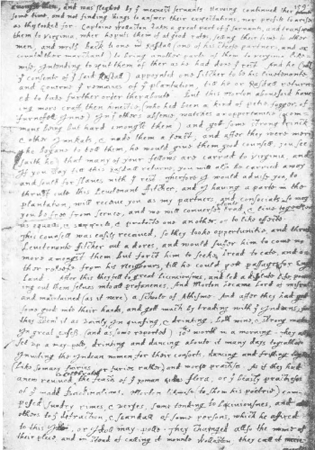 amongst them, and was sleghted by ye meanest servants. Haveing continued ther
some time, and not finding things to answer their expectations, nor profite to arise
as they looked for, Captaine Wollaston takes a great part of ye servants, and transports
them to Virginia, wher he puts them of at good rates, selling their time to other
men; and writs back to one Mr Rasdall, one of his cheefe partners, and
merchant, to bring another parte of them to
intending to put them of ther as he had done ye rest. And he
ye consente of ye said Rasdall) appoynted one Fitcher to his Livetenante,
and governe ye remaines of ye plantation, till he or Rasdall returned
to take further order theraboute. But this Morton abovesaid haveing
more craft then honestie, (who had been a kind of petie fogger, of
Furnefells Inne,) in ye others absence, watches an oppertunitie,
mons being but hard amongst them,) and gott some strong drinck
& other junkats, & made them a feast; and after they were merie
he begane to tell them, he would give them good counsell. You see
(saith he) that many of your fellows are carried to Virginia; and
if you stay till this Rasdall returne, you will also be carried away
and sould for slaves with ye rest. Therfore I would advise you to
thruste out this Levetenant Fitcher; and I having a parte in the
plantation, will receive you as my partners and consociats; so may
you be free from service, and we will converse, trad
as equalls, & supporte & protecte one another, or to like effecte.
This counsell was easily received; so they tooke oppertunitie, and thrust
Levetenante Fitcher out a dores, and would suffer him to come no
more amongst them, but forct him to seeke bread to eate, and
other releefe from his neigbours, till he could gett passages for
land. After this they fell to great licenciousnes, and led a dissolute life, powering
out them selves into all profanenes. And Morton became lord of misrule,
and maintained (as it were) a schoole of Athisme. And after they had gott
some good into their hands, and gott much by trading with ye Indeans,
they spent it as vainly, in quaffing & drinking both wine & strong waters
in great exsess, and, as some reported, 10li worth in a morning. They
set up a May-pole, drinking and dancing aboute it many days togeather,
inviting the Indean women, for their consorts, dancing and frisking
(like so many fairies, or furies rather,) and worse practises. As if they had
anew revived
the feasts of ye Roman Goddes Flora, or ye beasly practieses
of ye madd Bacchinalians. Morton likwise (to shew his poetrie)
sundry rimes & verses, some tending to lasciviousnes, and
others to ye detraction & scandall of some persons, which he affixed
to this May-polle. They chainged allso the name of
their place, and in stead of calling it Mounte Wollaston, they call it